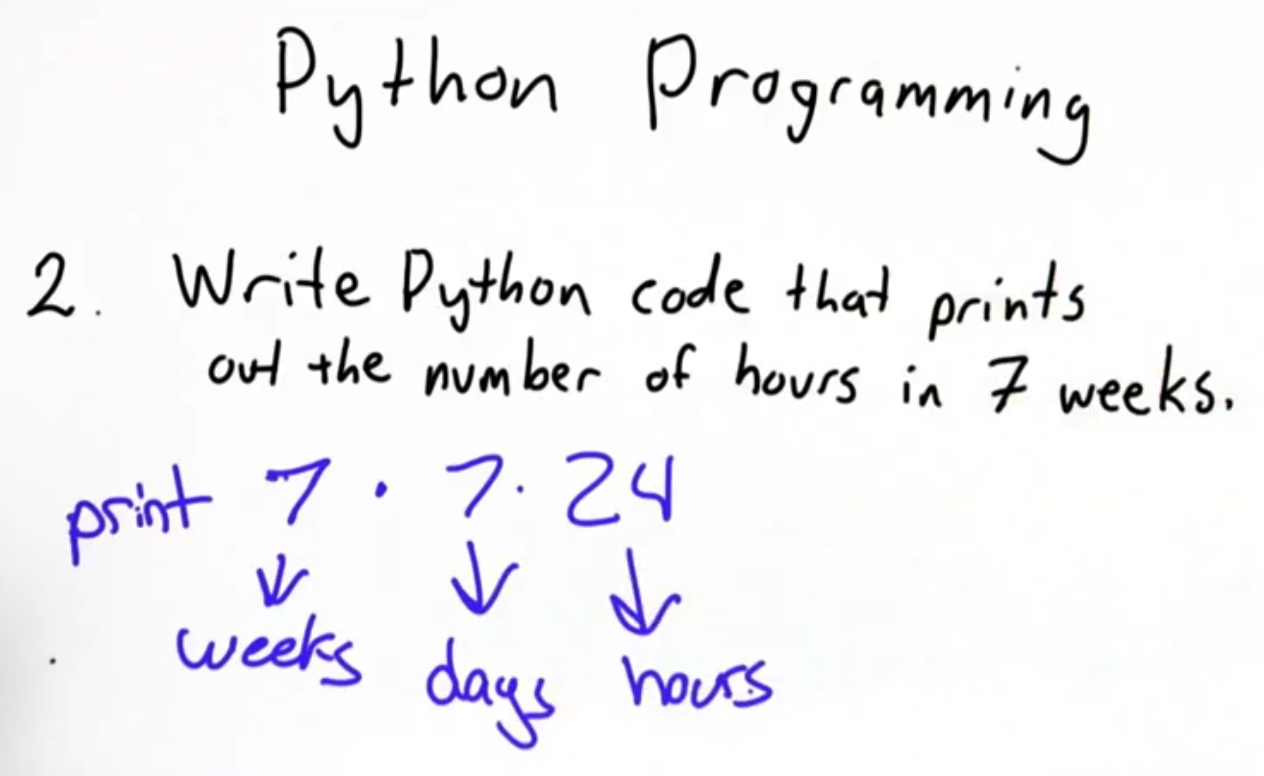 Python Programming
2. Write Python code that prints
out the number of hours in 7 weeks.
print 7 · 7 · 24
weeks days hours